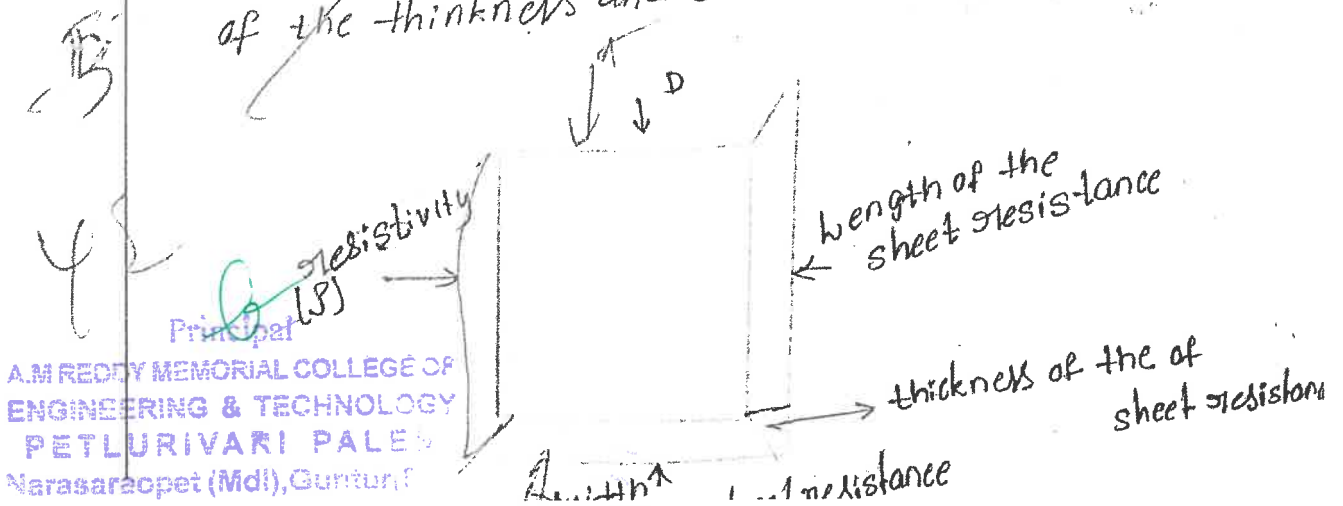 of the thinkness
D
Length of the
sheet resistance
resistivity
(ρ)
thickness of the of
sheet
width
resistance
Principal
A.M REDDY MEMORIAL COLLEGE OF
ENGINEERING & TECHNOLOGY
PETLURIVARI PALE
Narasaraopet (Mdl), Guntur